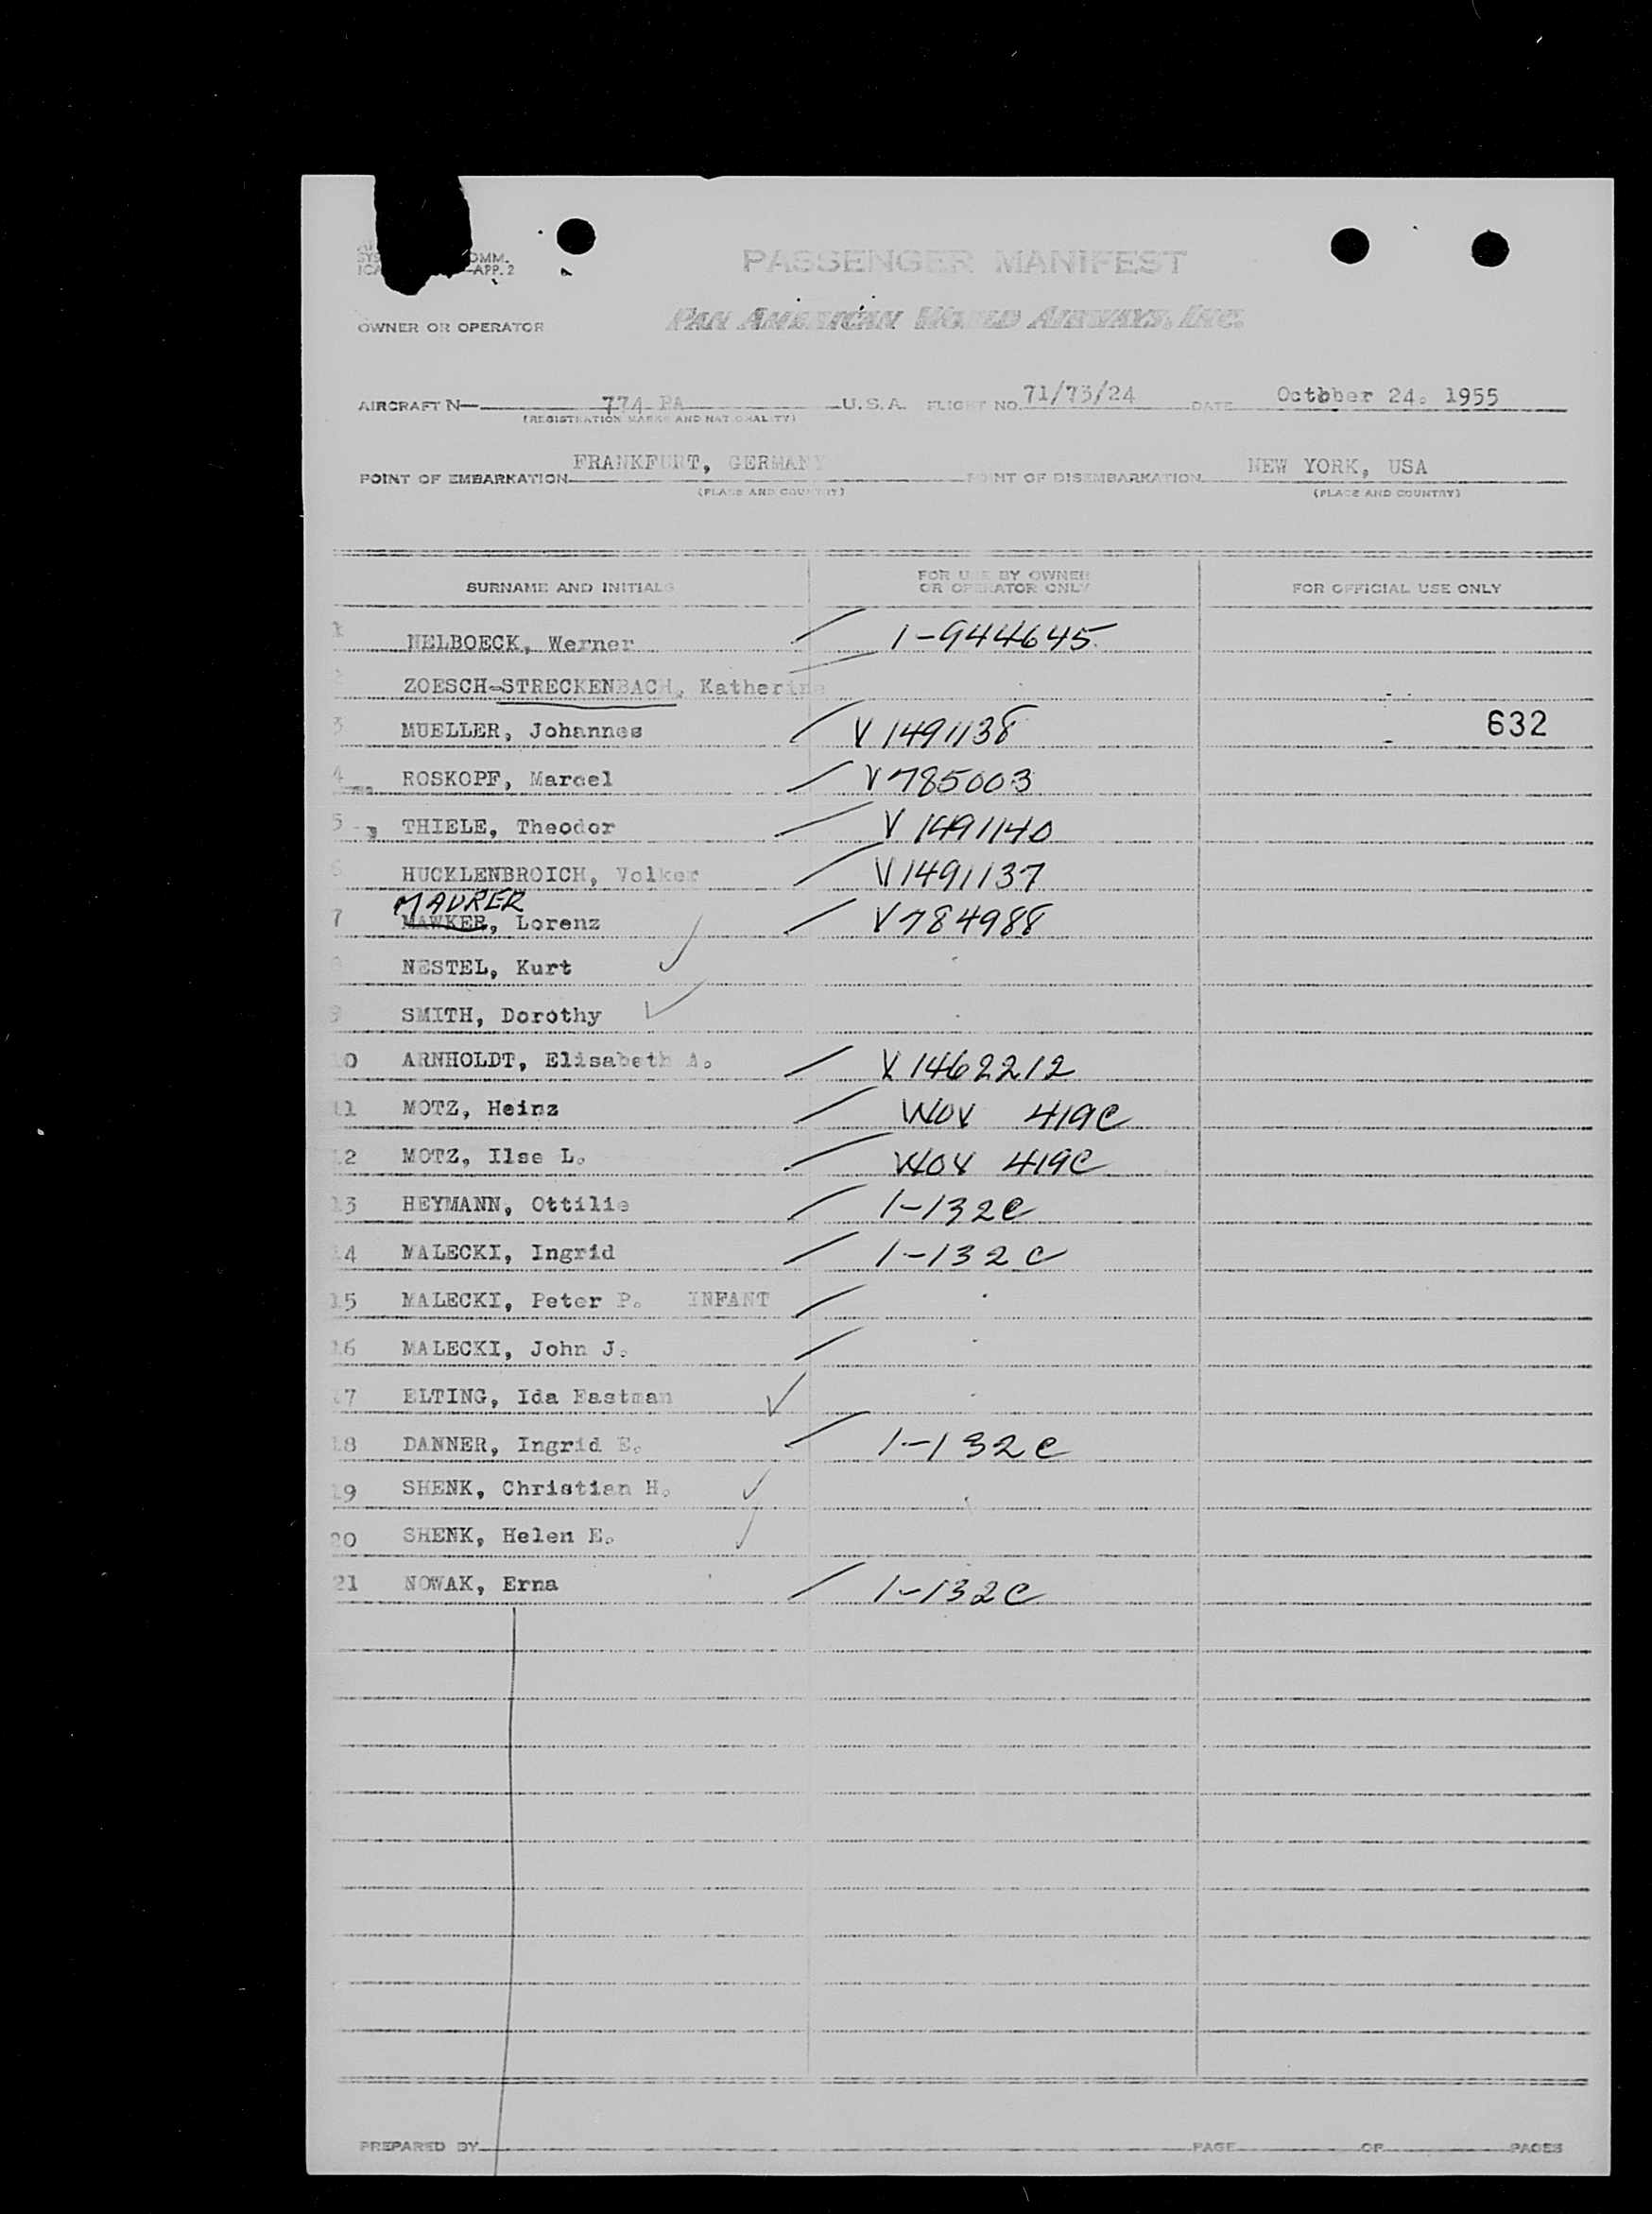 SYS OMM.
ICA —APP. 2
PASSENGER MANIFEST
OWNER OR OPERATOR PAN AMERICAN WORLD AIRWAYS, INC.
AIRCRAFT N— 774 PA U.S.A. FLIGHT NO. 71/73/24 DATE Octbber 24. 1955
(REGISTRATION MARKS AND NATIONALITY)
POINT OF EMBARKATION FRANKFURT, GERMANY POINT OF DISEMBARKATION NEW YORK, USA
(PLACE AND COUNTRY) (PLACE AND COUNTRY)
SURNAME AND INITIALS FOR USE BY OWNER OR OPERATOR ONLY FOR OFFICIAL USE ONLY
1 NELBOECK, Werner / 1-944645
2 ZOESCH-STRECKENBACH, Katherina /
3 MUELLER, Johannes / V 1491138 632
4 ROSKOPF, Marcel / V785003
5 THIELE, Theodor / V 1491140
6 HUCKLENBROICH, Volker / V1491137
MAURER
7 MAWKER, Lorenz / V784988
8 NESTEL, Kurt ✓
9 SMITH, Dorothy ✓
10 ARNHOLDT, Elisabeth A. / V 1462212
11 MOTZ, Heinz / WOV 419C
12 MOTZ, Ilse L. / WOV 419C
13 HEYMANN, Ottilie / 1-132C
14 MALECKI, Ingrid / 1-132C
15 MALECKI, Peter P. INFANT /
16 MALECKI, John J. /
17 ELTING, Ida Eastman ✓
18 DANNER, Ingrid E. / 1-132C
19 SHENK, Christian H. ✓
20 SHENK, Helen E. ✓
21 NOWAK, Erna / 1-132C
PREPARED BY PAGE OF PAGES